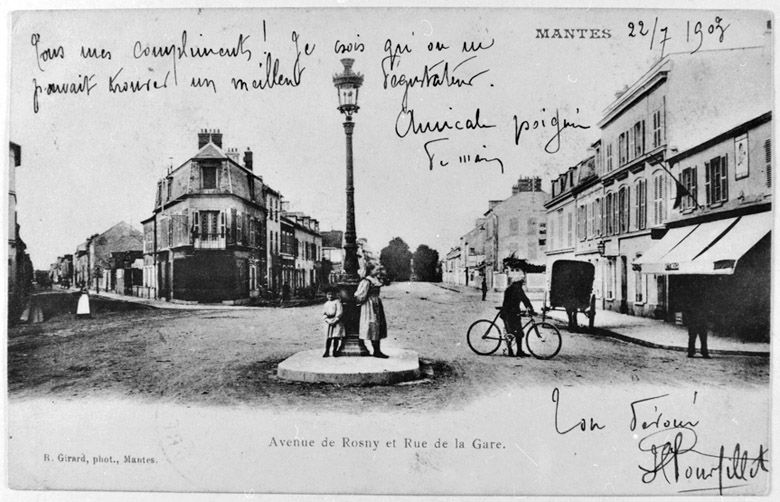 MANTES 22/7
Tous mes compliments ! Je crois qu'on ne
pouvait trouver un meilleur dégustateur.
Amicale poignée
de main
Ton dévoué
Avenue de Rosny et Rue de la Gare.
R. Girard, phot., Mantes.